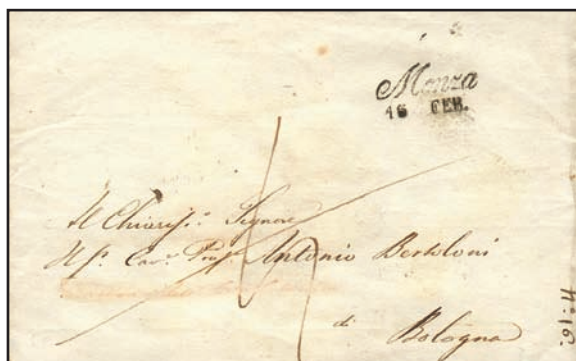 Monza
16 FEB.
Al Chiariss.º Signore
Il S. Cav.e Prof. Antonio Bertoloni
di
Bologna